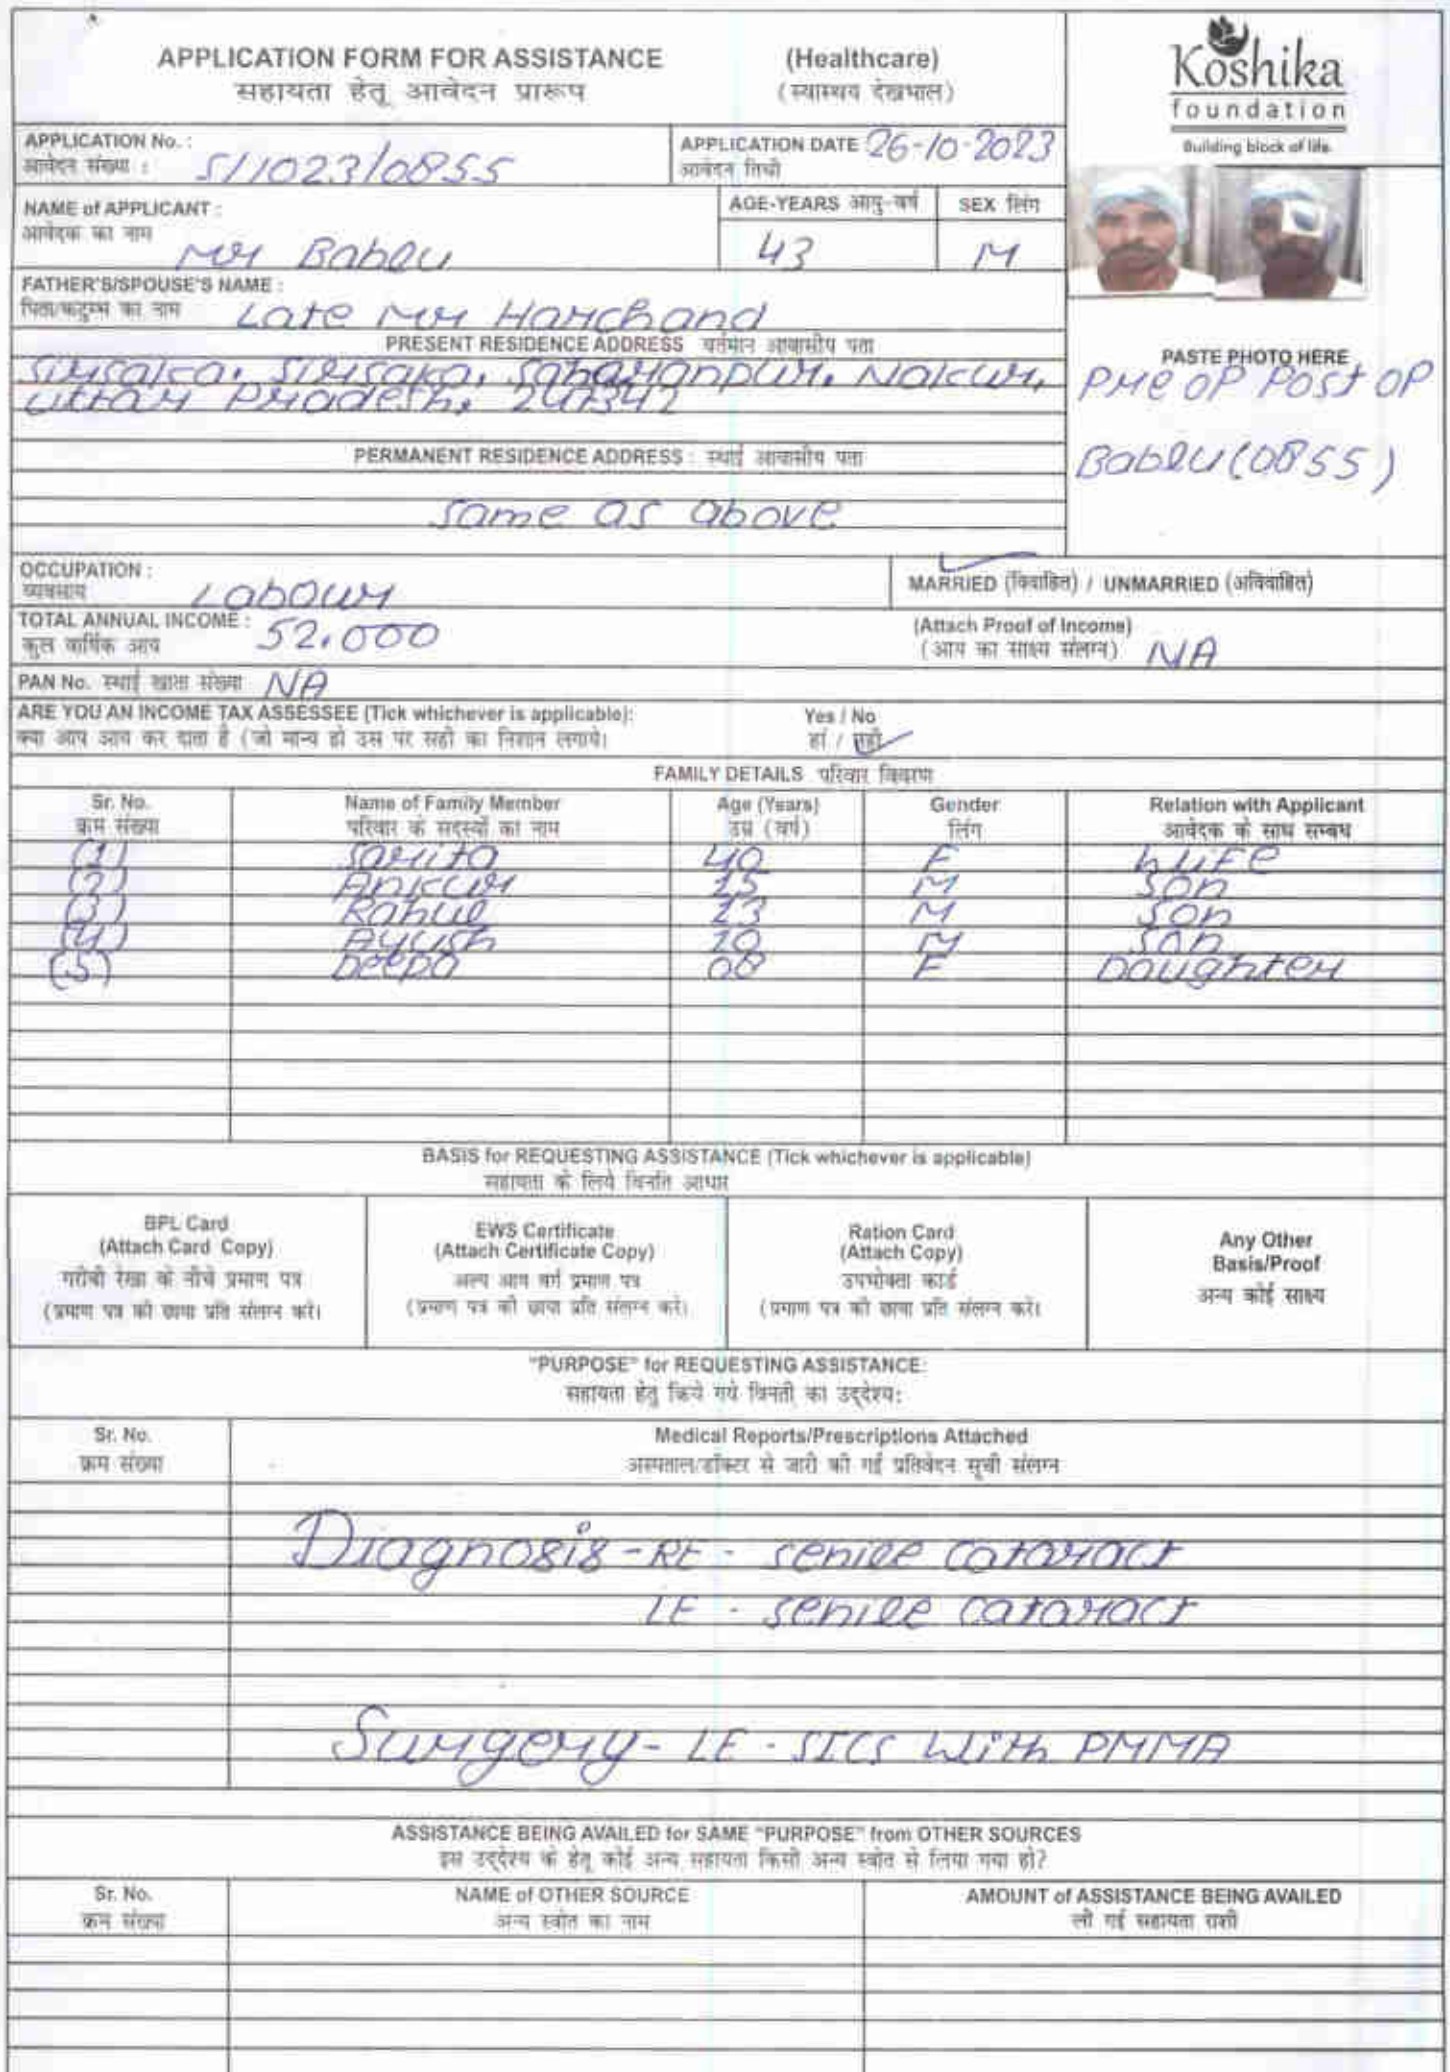 APPLICATION FORM FOR ASSISTANCE (Healthcare)
सहायता हेतू आवेदन प्रारूप (स्वास्थय देखभाल)
Koshika
foundation
Building block of life.
APPLICATION No. : S/1023/0855 APPLICATION DATE 26-10-2023
आवेदन संख्या : आवेदन तिथी
NAME of APPLICANT : AGE-YEARS आयु-वर्ष SEX लिंग
आवेदक का नाम Mr Bablu 43 M
FATHER'S/SPOUSE'S NAME :
पिता/कटुम्ब का नाम Late Mr Harchand
PRESENT RESIDENCE ADDRESS वर्तमान आवासीय पता
Sirsaka, Sirsaka, Saharanpur, Nakur,
Uttar Pradesh, 247342
PASTE PHOTO HERE
Pre OP Post OP
Bablu (0855)
PERMANENT RESIDENCE ADDRESS : स्थाई आवासीय पता
Same as above
OCCUPATION :
व्यवसाय Labour
MARRIED (विवाहित) / UNMARRIED (अविवाहित)
TOTAL ANNUAL INCOME : 52,000 (Attach Proof of Income)
कुल वार्षिक आय (आय का साक्ष्य संलग्न) NA
PAN No. स्थाई खाता संख्या NA
ARE YOU AN INCOME TAX ASSESSEE (Tick whichever is applicable): Yes / No
क्या आप आय कर दाता है (जो मान्य हो उस पर सही का निशान लगाये। हां / नहीं
FAMILY DETAILS परिवार विवरण
Sr. No. Name of Family Member Age (Years) Gender Relation with Applicant
क्रम संख्या परिवार के सदस्यों का नाम उम्र (वर्ष) लिंग आवेदक के साथ सम्बध
(1) Sarita 40 F Wife
(2) Ankur 15 M Son
(3) Rahul 13 M Son
(4) Ayush 10 M Son
(5) Deepa 08 F Daughter
BASIS for REQUESTING ASSISTANCE (Tick whichever is applicable)
सहायता के लिये विनति आधार
BPL Card
(Attach Card Copy)
गरीबी रेखा के नीचे प्रमाण पत्र
(प्रमाण पत्र की छाया प्रति संलग्न करें।
EWS Certificate
(Attach Certificate Copy)
अल्प आय वर्ग प्रमाण पत्र
(प्रमाण पत्र की छाया प्रति संलग्न करें।
Ration Card
(Attach Copy)
उपभोक्ता कार्ड
(प्रमाण पत्र की छाया प्रति संलग्न करें।
Any Other
Basis/Proof
अन्य कोई साक्ष्य
"PURPOSE" for REQUESTING ASSISTANCE:
सहायता हेतु किये गये विनती का उद्देश्य:
Sr. No. Medical Reports/Prescriptions Attached
क्रम संख्या अस्पताल/डॉक्टर से जारी की गई प्रतिवेदन सूची संलग्न
Diagnosis - RE - Senile Cataract
LE - Senile Cataract
Surgery - LE - SICS With PMMA
ASSISTANCE BEING AVAILED for SAME "PURPOSE" from OTHER SOURCES
इस उद्देश्य के हेतू कोई अन्य सहायता किसी अन्य स्त्रोत से लिया गया हो?
Sr. No. NAME of OTHER SOURCE AMOUNT of ASSISTANCE BEING AVAILED
क्रम संख्या अन्य स्त्रोत का नाम ली गई सहायता राशी